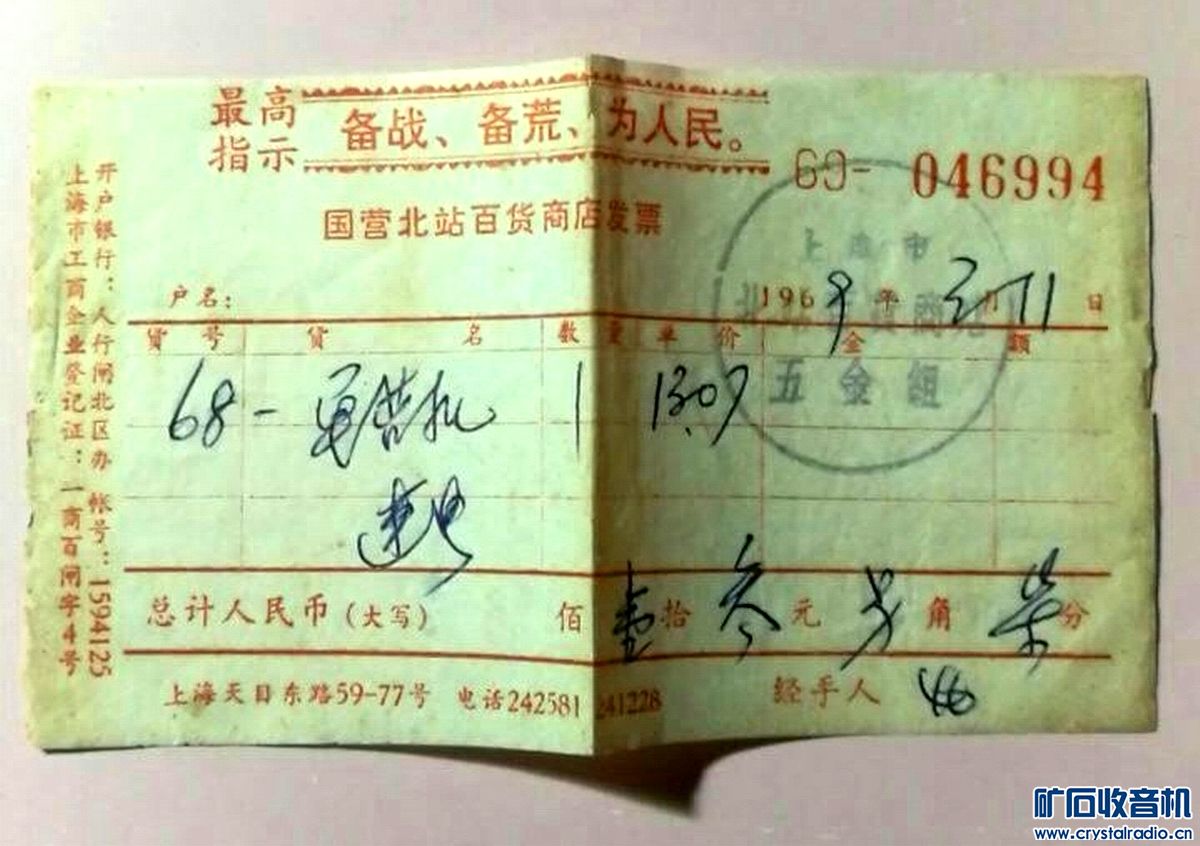 最高指示
备战、备荒、为人民。
69- 046994
国营北站百货商店发票
上海市
五金组
户名：
1969年 2月11日
货号 货名 数量 单价 金额
68- 1 13.07
总计人民币（大写） 佰 壹拾 叁元 角 柒分
上海天目东路59-77号 电话242581 241228 经手人
开户银行：人行闸北区办 帐号：1594125
上海市工商企业登记证：一商百闸字4号
矿石收音机
www.crystalradio.cn